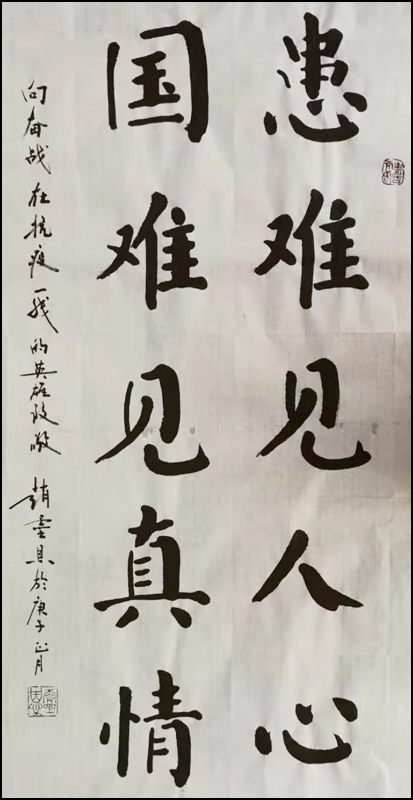 患难见人心
国难见真情
向奋战在抗疫一线的英雄致敬 赵
于庚子正月